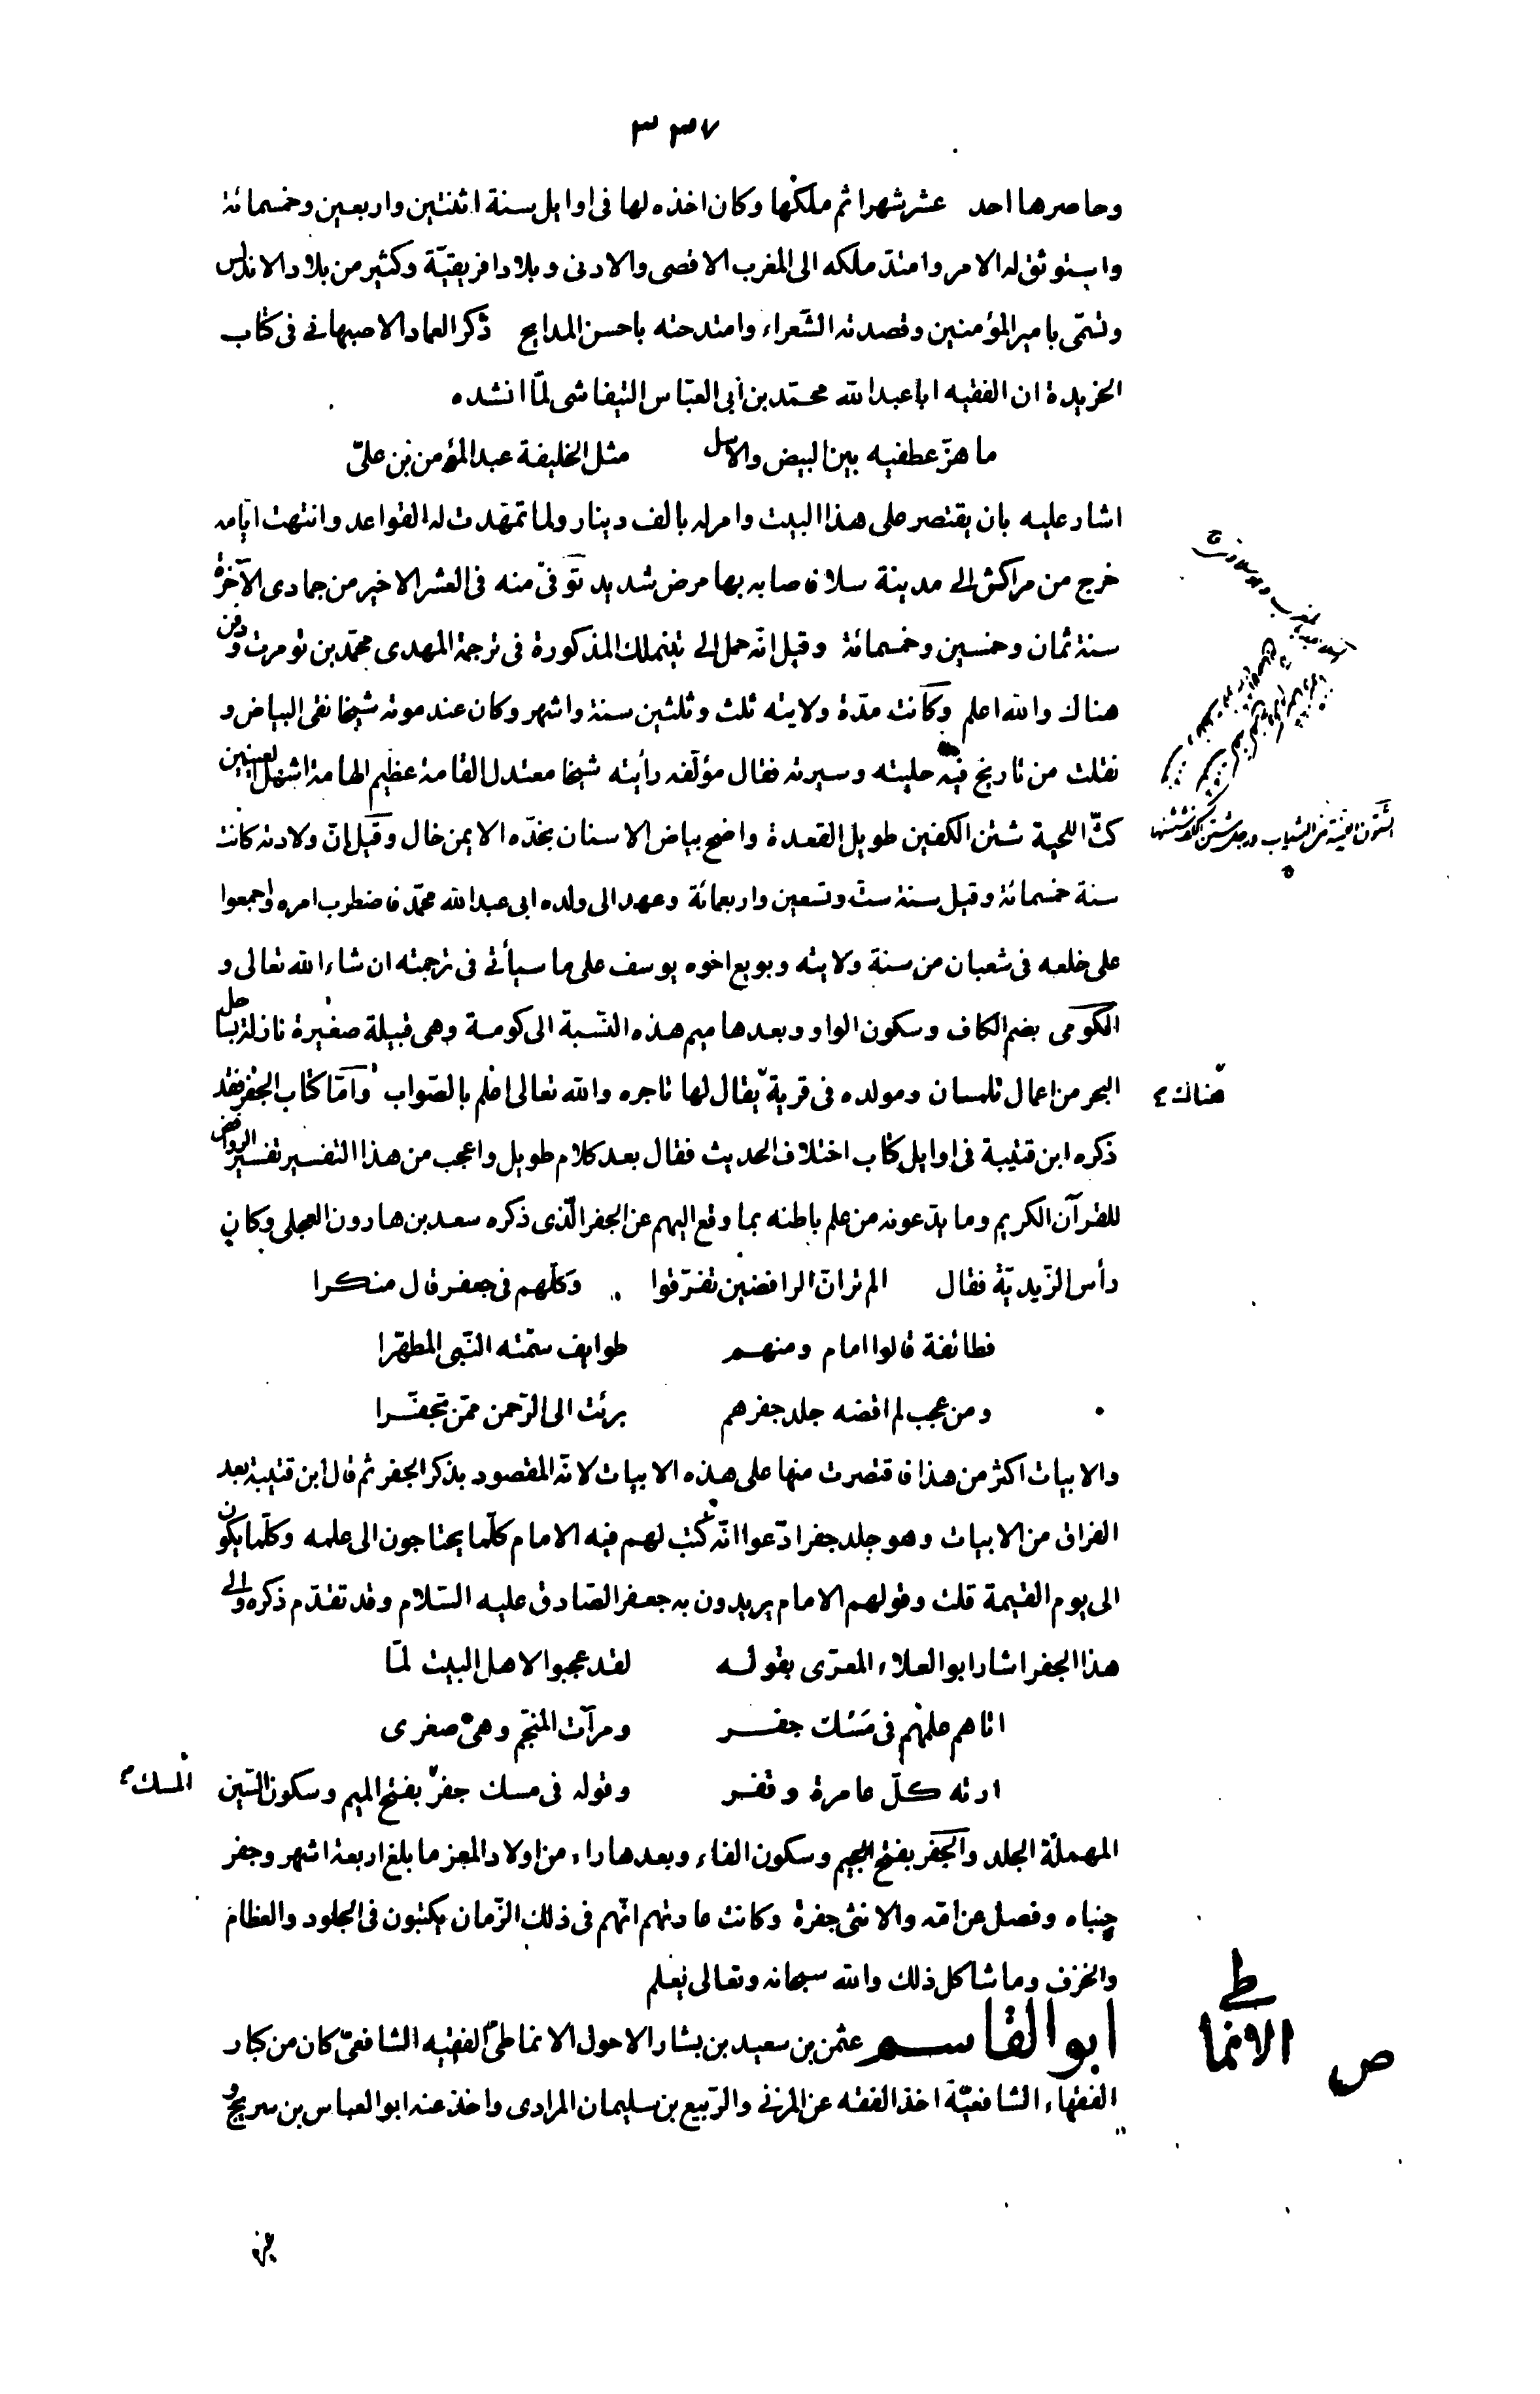 ٣٣٧
وحاصرها احد عشر شهرا ثم ملكها وكان اخذه لها فى اوايل سنة اثنتين واربعين وخمسمائة
واستوثق له الامر وامتدّ ملكه الى المغرب الاقصى والادنى وبلاد افريقيّة وكثير من بلاد الاندلس
وتسمّى بامير المؤمنين وقصدته الشّعراء وامتدحته باحسن المدايح ذكر العماد الاصبهانى فى كتاب
الخريدة ان الفقيه ابا عبد الله محمّد بن أبى العبّاس التيفاشى لمّا انشده
ما هزّ عطفيه بين البيض والاسل مثل الخليفة عبد المؤمن بن علىّ
اشار عليه بان يقتصر على هذا البيت وامر له بالف دينار ولما تمهّدت له القواعد وانتهت ايّامه
خرج من مراكش الى مدينة سلا فاصابه بها مرض شديد توفّى منه فى العشر الاخير من جمادى الآخرة
سنة ثمان وخمسين وخمسمائة وقيل انّه حمل الى تينملل المذكورة فى ترجمة المهدى محمّد بن تومرت ودفن
هناك والله اعلم وكانت مدّة ولايته ثلث وثلثين سنة واشهر وكان عند موته شيخا نقى البياض و
نقلت من تاريخ فيه حليته وسيرته فقال مؤلّفه رأيته شيخا معتدل القامة عظيم الهامة اشهل العينين
كثّ اللحية شثن الكفين طويل القعدة واضح بياض الاسنان بخدّه الايمن خال وقيل انّ ولادته كانت
سنة خمسمائة وقيل سنة ستّ وتسعين واربعمائة وعهد الى ولده ابى عبد الله محمّد فاضطرب امره واجمعوا
على خلعه فى شعبان من سنة ولايته وبويع اخوه يوسف على ما سيأتى فى ترجمته ان شاء الله تعالى و
الكومى بضم الكاف وسكون الواو وبعدها ميم هذه النّسبة الى كومة وهى قبيلة صغيرة نازلة بساحل
البحر من اعمال تلمسان ومولده فى قرية يقال لها تاجره والله تعالى اعلم بالصّواب وامّا كتاب الجفر فقد
هناك
ذكره ابن قتيبة فى اوايل كتاب اختلاف الحديث فقال بعد كلام طويل واعجب من هذا التفسير تفسير الروافض
للقرآن الكريم وما يدّعونه من علم باطنه بما وقع اليهم عن الجفر الّذى ذكره سعد بن هارون العجلى وكان
رأس الزّيديّة فقال الم تر انّ الرافضين تفرّقوا وكلّهم فى جعفر قال منكرا
فطائفة قالوا امام ومنهم طوايف سمّته النّبى المطهّرا
ومن عجب لم اقضه جلد جفرهم برئت الى الرّحمن ممّن تجفّرا
والابيات اكثر من هذا فاقتصرت منها على هذه الابيات لانّه المقصود بذكر الجفر ثم قال ابن قتيبة بعد
الفراق من الابيات وهو جلد جفر ادّعوا انّه كتب لهم فيه الامام كلّما يحتاجون الى علمه وكلّما يكون
الى يوم القيمة قلت وقولهم الامام يريدون به جعفر الصّادق عليه السّلام وقد تقدّم ذكره والى
هذا الجفر اشار ابو العلاء المعرّى بقوله لقد عجبوا لاهل البيت لمّا
اتاهم علمهم فى مَسْك جفر ومرآت المنجّم وهى صغرى
ارته كلّ عامرة وقفر وقوله فى مسك جفر بفتح الميم وسكون السّين
المسك
المهملة الجلد والجفر بفتح الجيم وسكون الفاء وبعدها راء من اولاد المعز ما بلغ اربعة اشهر وجفر
جنباه وفصل عن امّه والانثى جفرة وكانت عادتهم انّهم فى ذلك الزّمان يكتبون فى الجلود والعظام
والخزف وما شاكل ذلك والله سبحانه وتعالى يعلم
ابو القاسم عثمن بن سعيد بن بشار الاحول الانماطىّ الفقيه الشافعىّ كان من كبار
الانماطى
ص
الفقهاء الشافعيّة اخذ الفقه عن المزنى والرّبيع بن سليمان المرادى واخذ عنه ابو العباس بن سريج و